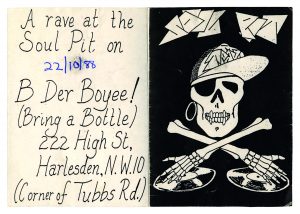 A rave at the
Soul Pit on
22/10/88
B Der Boyee!
(Bring a Bottle)
222 High St,
Harlesden, N.W.10
(Corner of Tubbs Rd.)